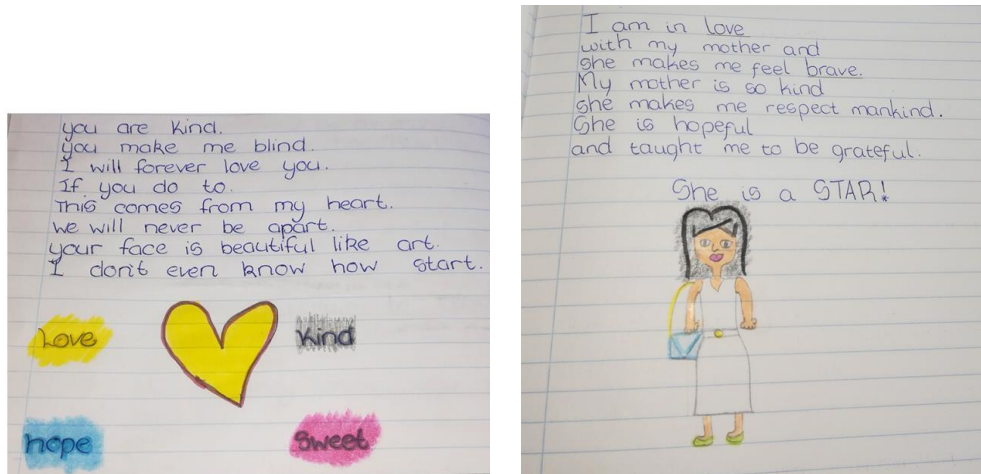 you are kind.
you make me blind.
I will forever love you.
If you do to.
This comes from my heart.
we will never be apart.
your face is beautiful like art.
I don't even know how start.
Love
kind
hope
Sweet
I am in love
with my mother and
she makes me feel brave.
My mother is so kind
she makes me respect mankind.
She is hopeful
and taught me to be grateful.
She is a STAR!